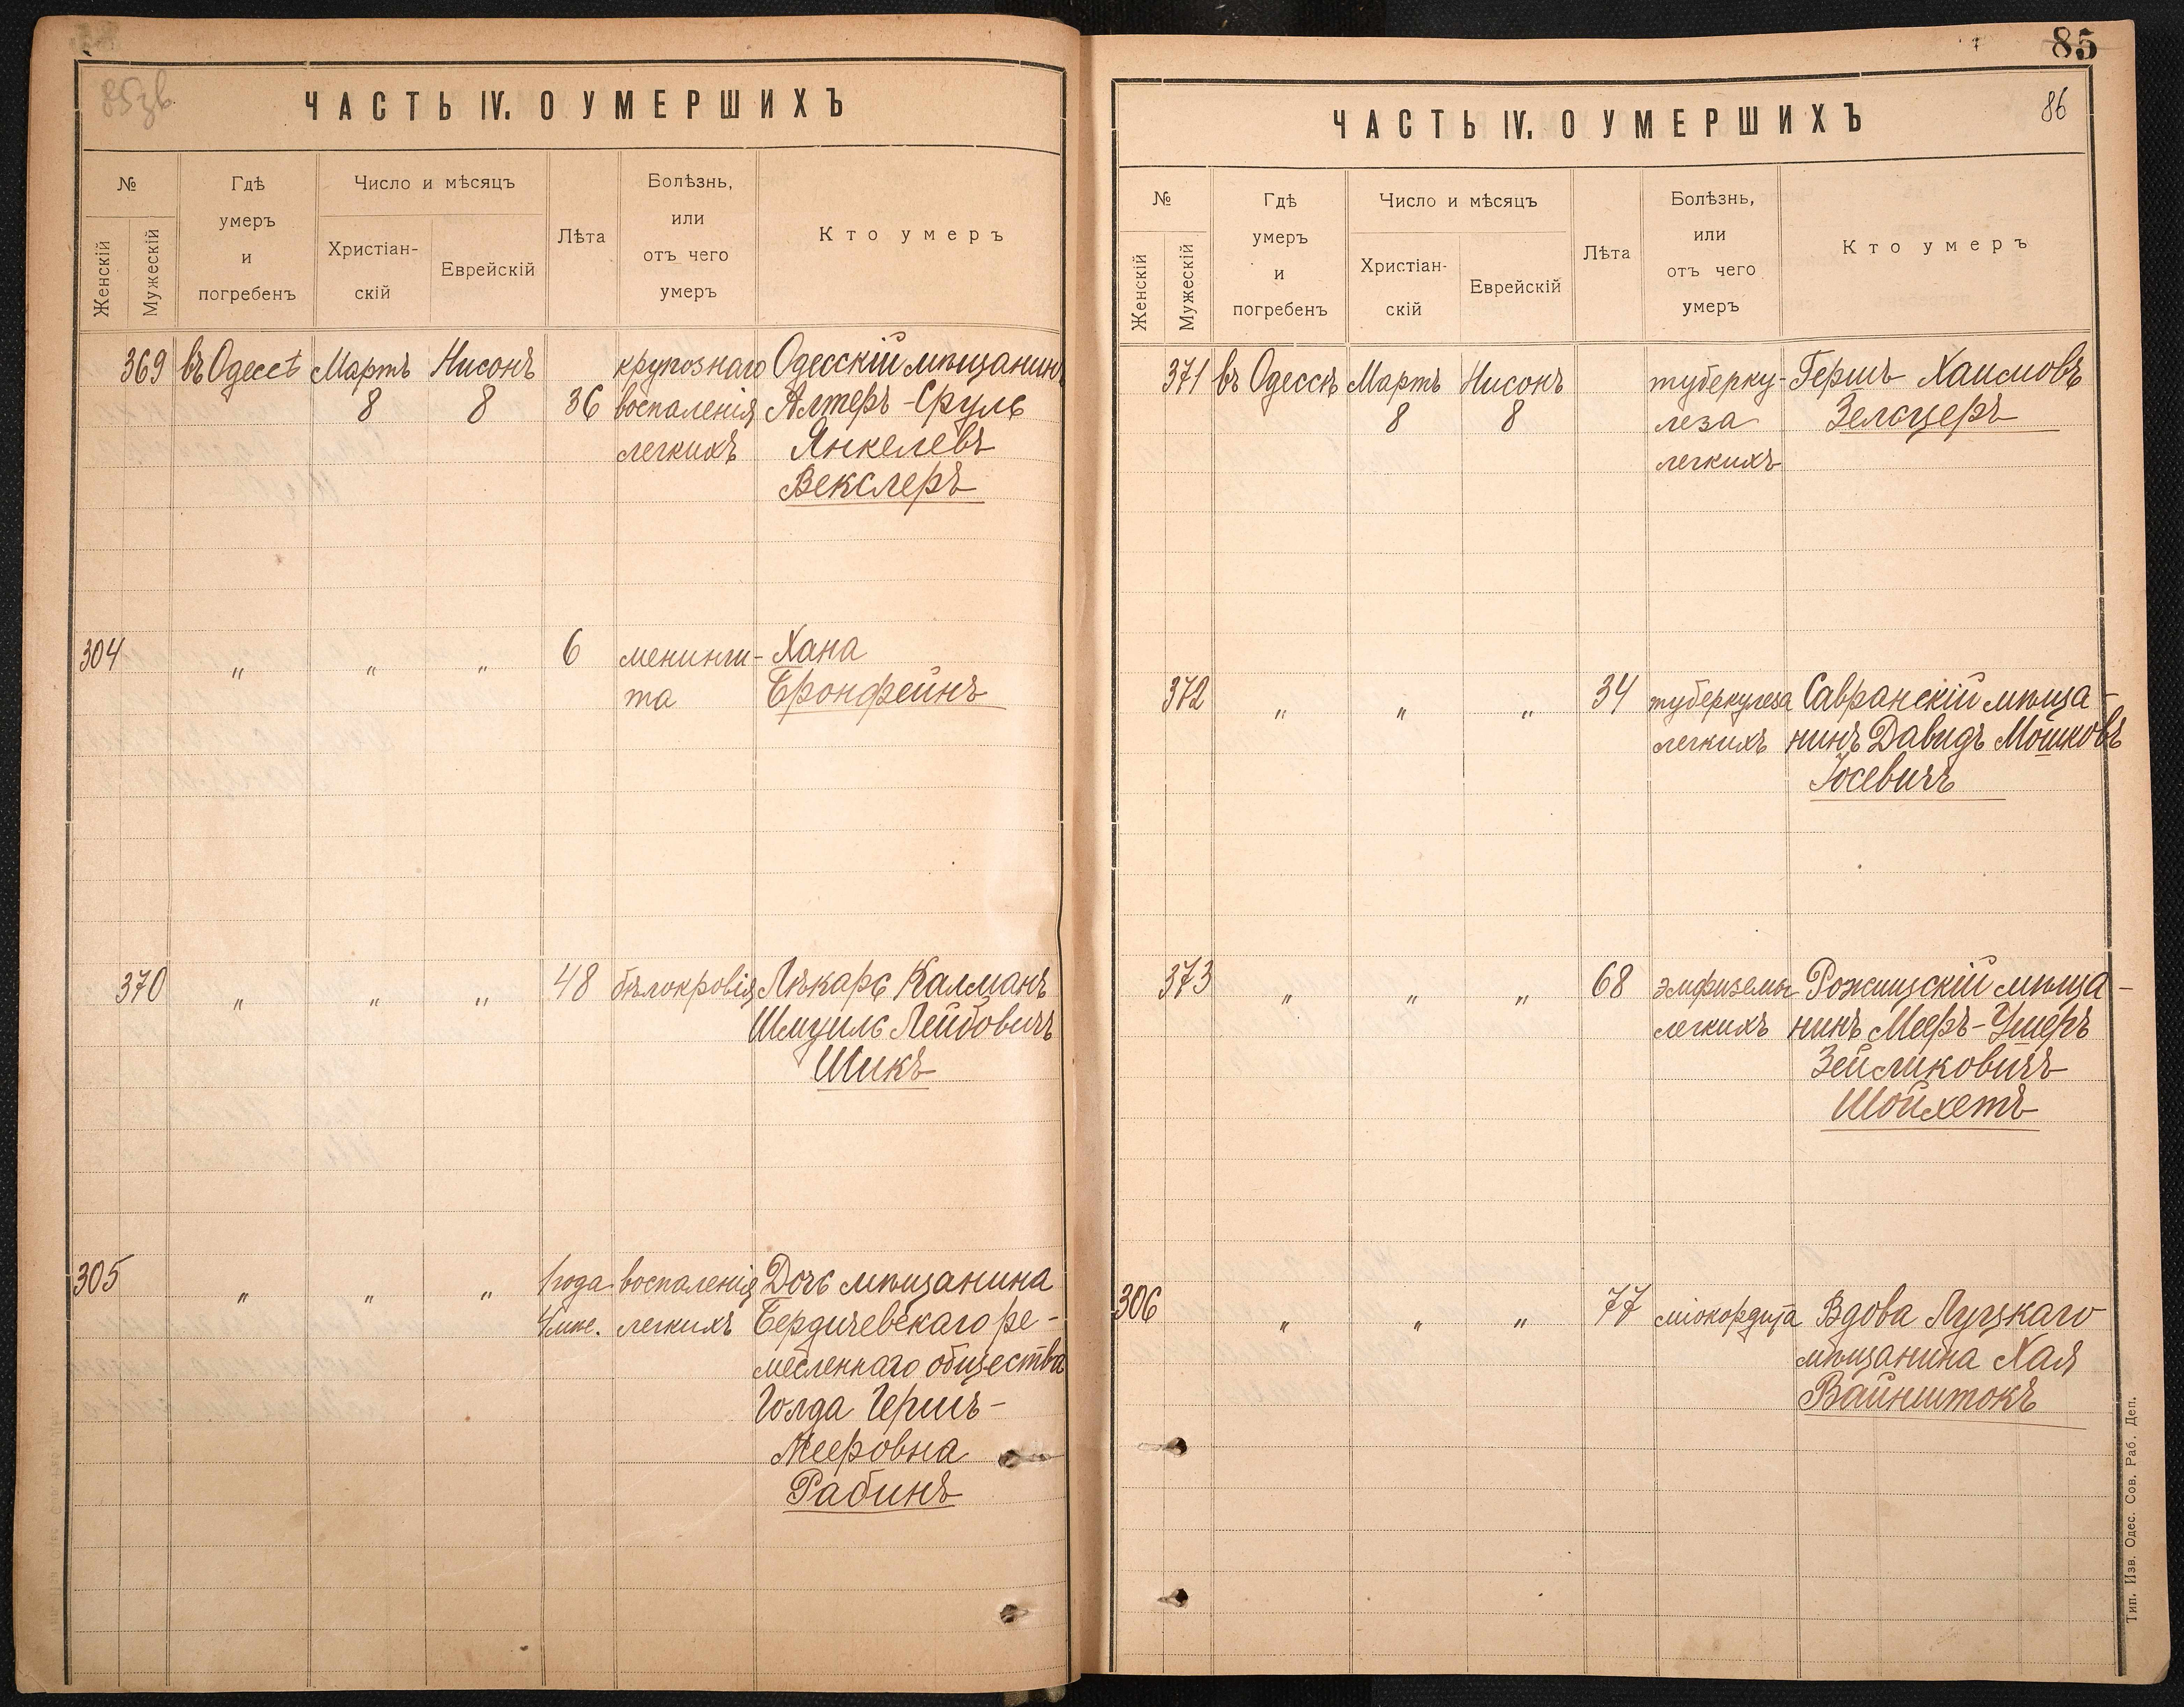 85зв.
ЧАСТЬ IV. О УМЕРШИХЪ
№
Женскій
Мужескій
Гдѣ
умеръ
и
погребенъ
Число и мѣсяцъ
Христіан-
скій
Еврейскій
Лѣта
Болѣзнь,
или
отъ чего
умеръ
Кто умеръ
369 въ Одессѣ Мартъ Нисонъ крупознаго Одесскій мѣщанинъ
8 8 36 воспаленія Алтеръ-Сруль
легкихъ Янкелевъ
Векслеръ
304 „ „ „ 6 менинги- Хана
та Бронфейнъ
370 „ „ „ 48 бѣлокровія Лѣкарь Калманъ
Шмуиль Лейбовичъ
Шикъ
305 „ „ „ 1 года воспаленія Дочь мѣщанина
4 мѣс. легкихъ Бердичевскаго ре-
месленнаго общества
Голда Гершъ-
Мееровна
Рабинъ
85
86
ЧАСТЬ IV. О УМЕРШИХЪ
№
Женскій
Мужескій
Гдѣ
умеръ
и
погребенъ
Число и мѣсяцъ
Христіан-
скій
Еврейскій
Лѣта
Болѣзнь,
или
отъ чего
умеръ
Кто умеръ
371 въ Одессѣ Мартъ Нисонъ туберку- Гершъ Хаимовъ
8 8 леза Зельцеръ
легкихъ
372 „ „ „ 34 туберкулеза Савранскій мѣща-
легкихъ нинъ Давидъ Мошковъ
Іосевичъ
373 „ „ „ 68 эмфиземы Рожищскій мѣща-
легкихъ нинъ Мееръ-Ушеръ
Зейликовичъ
Шойхетъ
306 „ „ „ 77 міокордита Вдова Луцкаго
мѣщанина Хая
Вайнштокъ
Тип. Изв. Одес. Сов. Раб. Деп.